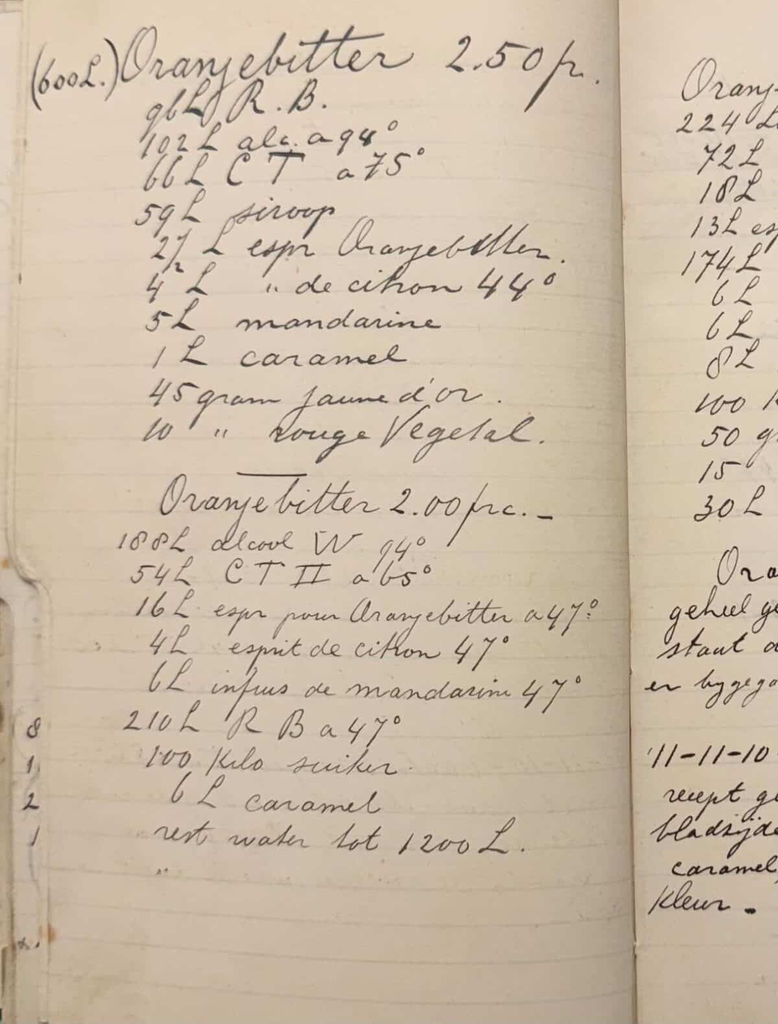 (600L.) Oranjebitter 2.50 fr.
96L R.B.
102L alc. a 94°
66L C T a 75°
59L siroop
27 L espr Oranjebitter.
4 L " de citron 44°
5L mandarine
1 L caramel
45 gram jaune d'or.
10 " rouge Vegetal.
Oranjebitter 2.00 frc. -
188L alcool W 94°
54L C T II a 65°
16L espr pour Oranjebitter a 47°
4L esprit de citron 47°
6L infus de mandarine 47°
210L R B a 47°
100 Kilo suiker.
6 L caramel
rest water tot 1200 L.
"
8
1
2
1
Oranje
224 L
72L
18L
13L esp
174L
6L
6L
8L
100 K
50 g
15
30L
Ora
geheel ge
staat
er bygego
'11-11-10
recept ge
bladzijde
caramel
Kleur -